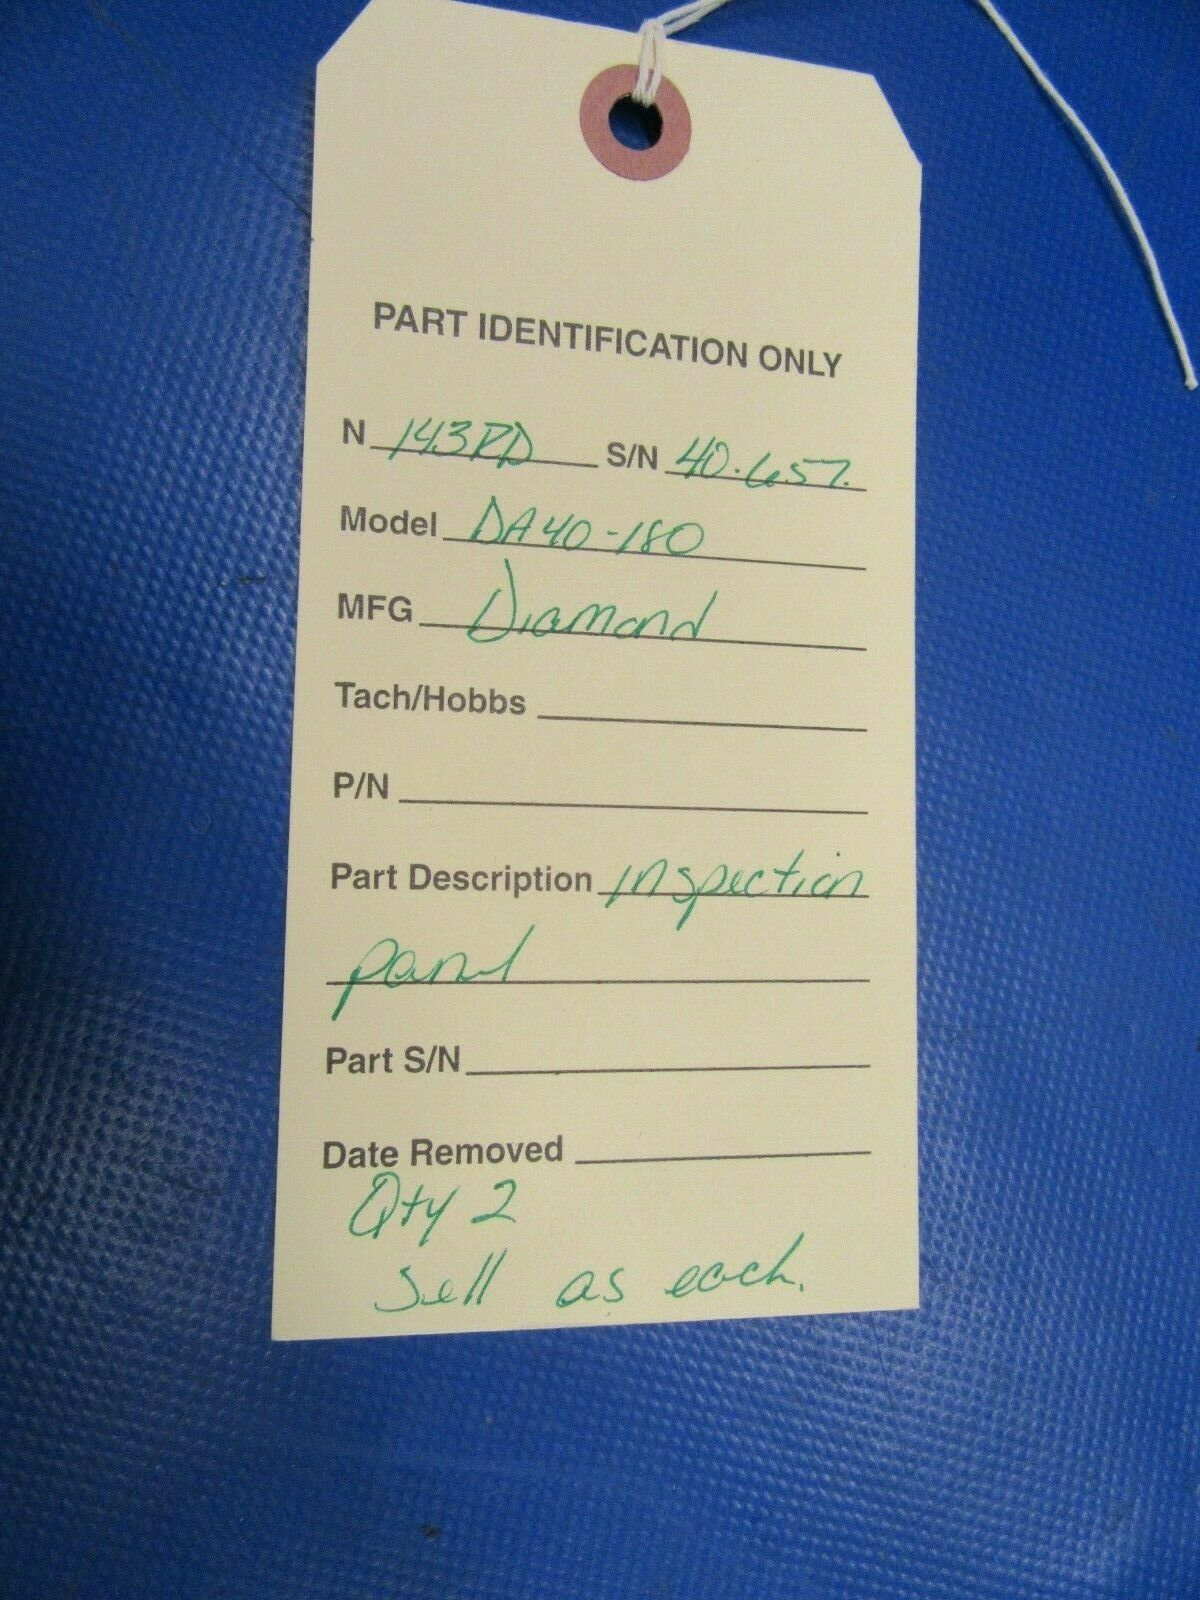 PART IDENTIFICATION ONLY
N 143PD S/N 40.657.
Model DA40-180
MFG Diamond
Tach/Hobbs
P/N
Part Description inspection
panel
Part S/N
Date Removed
Qty 2
Sell as each.